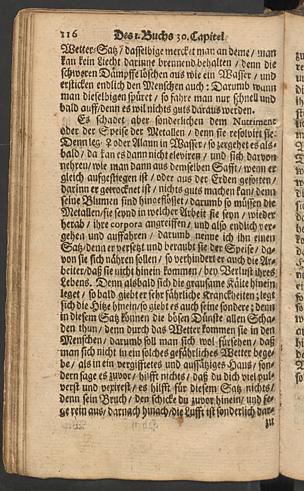 116 Des 1. Buchs 30. Capitel
Wetter/Satz/ dasselbige mercket man an deme/ man
kan kein Liecht darinne brennend behalten/ denn die
schweren Dämpffe löschen aus wie ein Wasser/ und
ersticken endlich den Menschen auch: Darumb wann
man dieselbigen spüret/ so fahre man nur schnell und
bald auff/ denn es wil nichts guts daraus werden.
Es schadet aber sonderlichen dem Nutriment
oder der Speise der Metallen/ denn sie resolvirt sie:
Denn leg ☿ oder Alaun in Wasser/ so zergehet es als-
bald/ da kan es dann nicht eleviren/ und sich darvon
nehren/ wie man dann aus demselben Safft/ wenn er
gleich auffgefangen ist/ oder aus der Erden gesotten/
darinn er getrocknet ist/ nichts guts machen kan/ denn
seine Blumen sind hingeflösset/ darumb so müssen die
Metallen/ sie seynd in welcher Arbeit sie seyn/ wieder
herab/ ihre corpora angreiffen/ und also endlich ver-
gehen und auffahren/ darumb nenne ich ihn einen
Satz/ denn er versetzt und beraubt sie der Speise/ da-
von sie sich nähren sollen/ so verhindert er auch die Ar-
beiter/ daß sie nicht hinein kommen/ bey Verlust ihres
Lebens. Denn alsbald sich die grausame Kälte hinein
leget/ so bald giebt er sehr fährliche Kranckheiten: legt
sich die Hitze hinein/ so giebt es auch seine sondere: denn
in diesem Satz können die bösen Dünste allen Scha-
den thun/ denn durch das Wetter kommen sie in den
Menschen/ darumb soll man sich wol fürsehen/ daß
man sich nicht in ein solches gefährliches Wetter bege-
be/ als in ein vergifftetes und aussätziges Haus/ son-
dern sage es zuvor/ hilfft nichts/ daß du dich viel pul-
verst und vexirest/ es hilfft für diesem Satz nichts/
denn sein Bruch/ den schicke du zuvor hinein/ und se-
ge rein aus/ darnach hinach/ die Lufft ist sonderlich dar-
zu